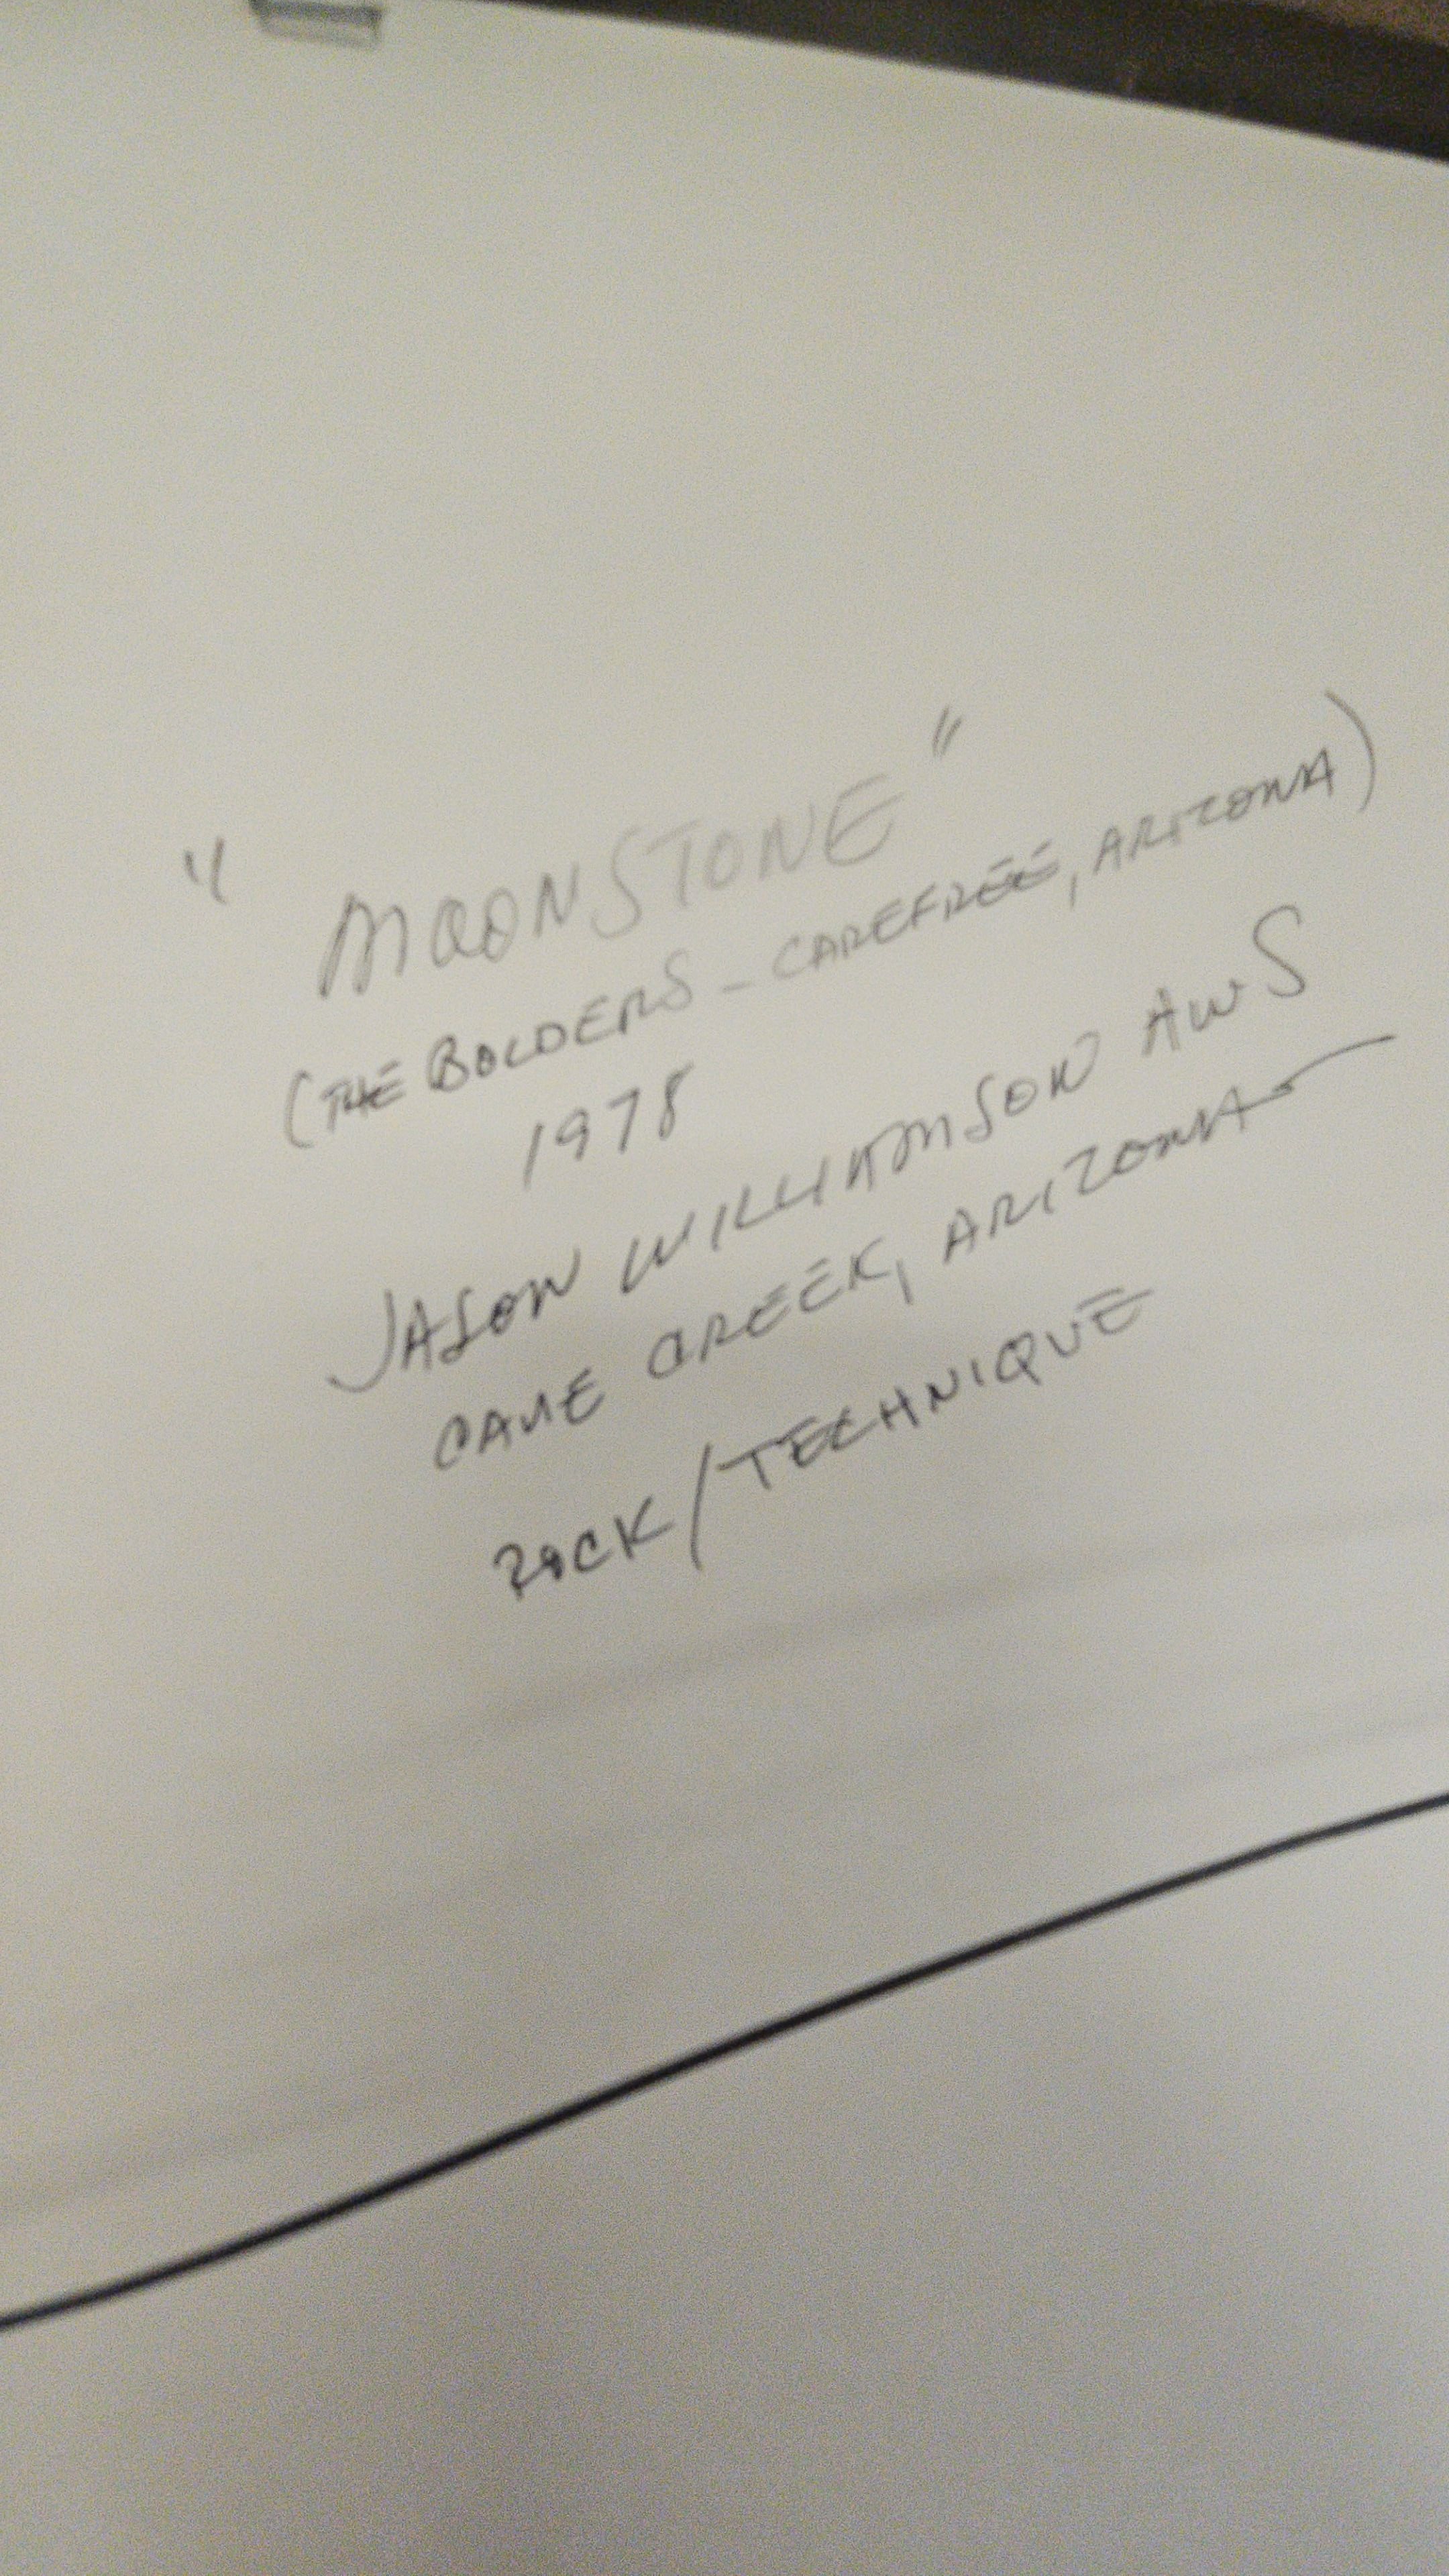 "MOONSTONE"
(THE BOLDERS - CAREFREE, ARIZONA)
1978
JASON WILLIAMSON AWS
CAVE CREEK, ARIZONA
ROCK/TECHNIQUE